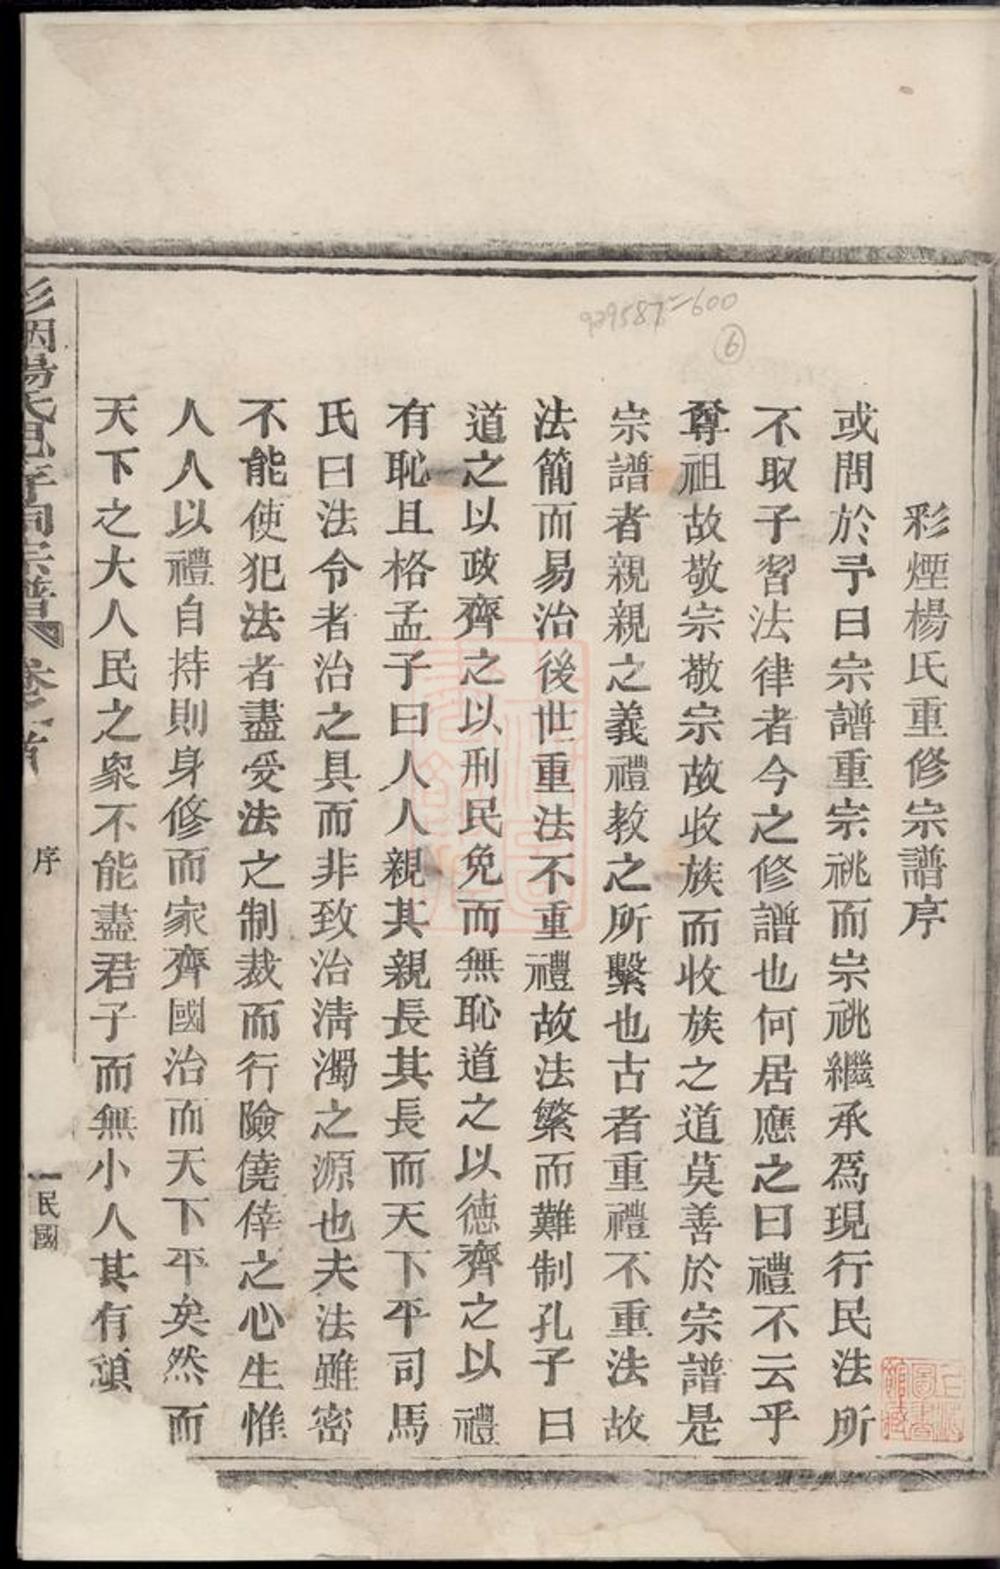 彩煙楊氏重修宗譜序
或問於予曰宗譜重宗祧而宗祧繼承爲現行民法所
不取子習法律者今之修譜也何居應之曰禮不云乎
尊祖故敬宗敬宗故收族而收族之道莫善於宗譜是
宗譜者親親之義禮教之所繫也古者重禮不重法故
法簡而易治後世重法不重禮故法繁而難制孔子曰
道之以政齊之以刑民免而無恥道之以德齊之以禮
有恥且格孟子曰人人親其親長其長而天下平司馬
氏曰法令者治之具而非致治淸濁之源也夫法雖密
不能使犯法者盡受法之制裁而行險僥倖之心生惟
人人以禮自持則身修而家齊國治而天下平矣然而
天下之大人民之衆不能盡君子而無小人其有頑
序
一民國
929587=600
6
上海圖書館藏